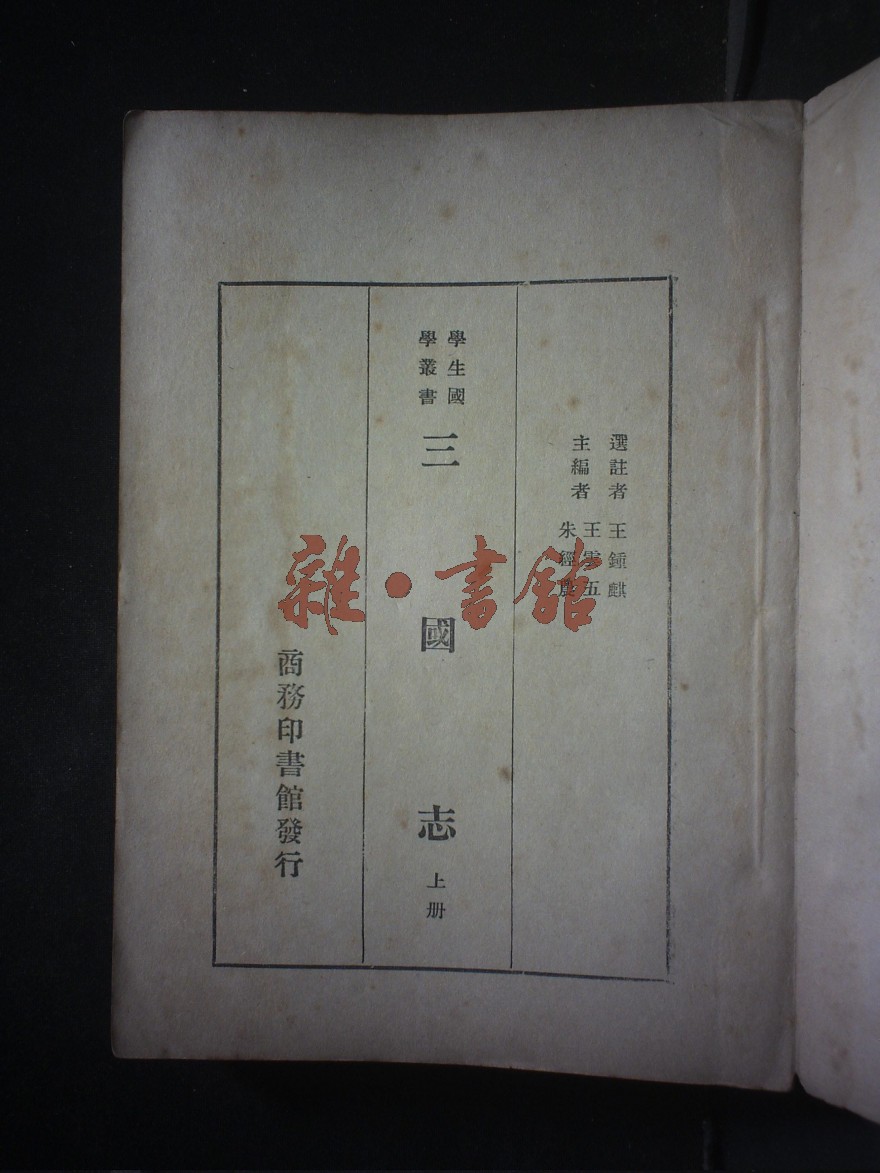 選註者 王鍾麒
主編者 王雲五
朱經農
學生國
學叢書
三國志 上册
商務印書館發行
雜·書館